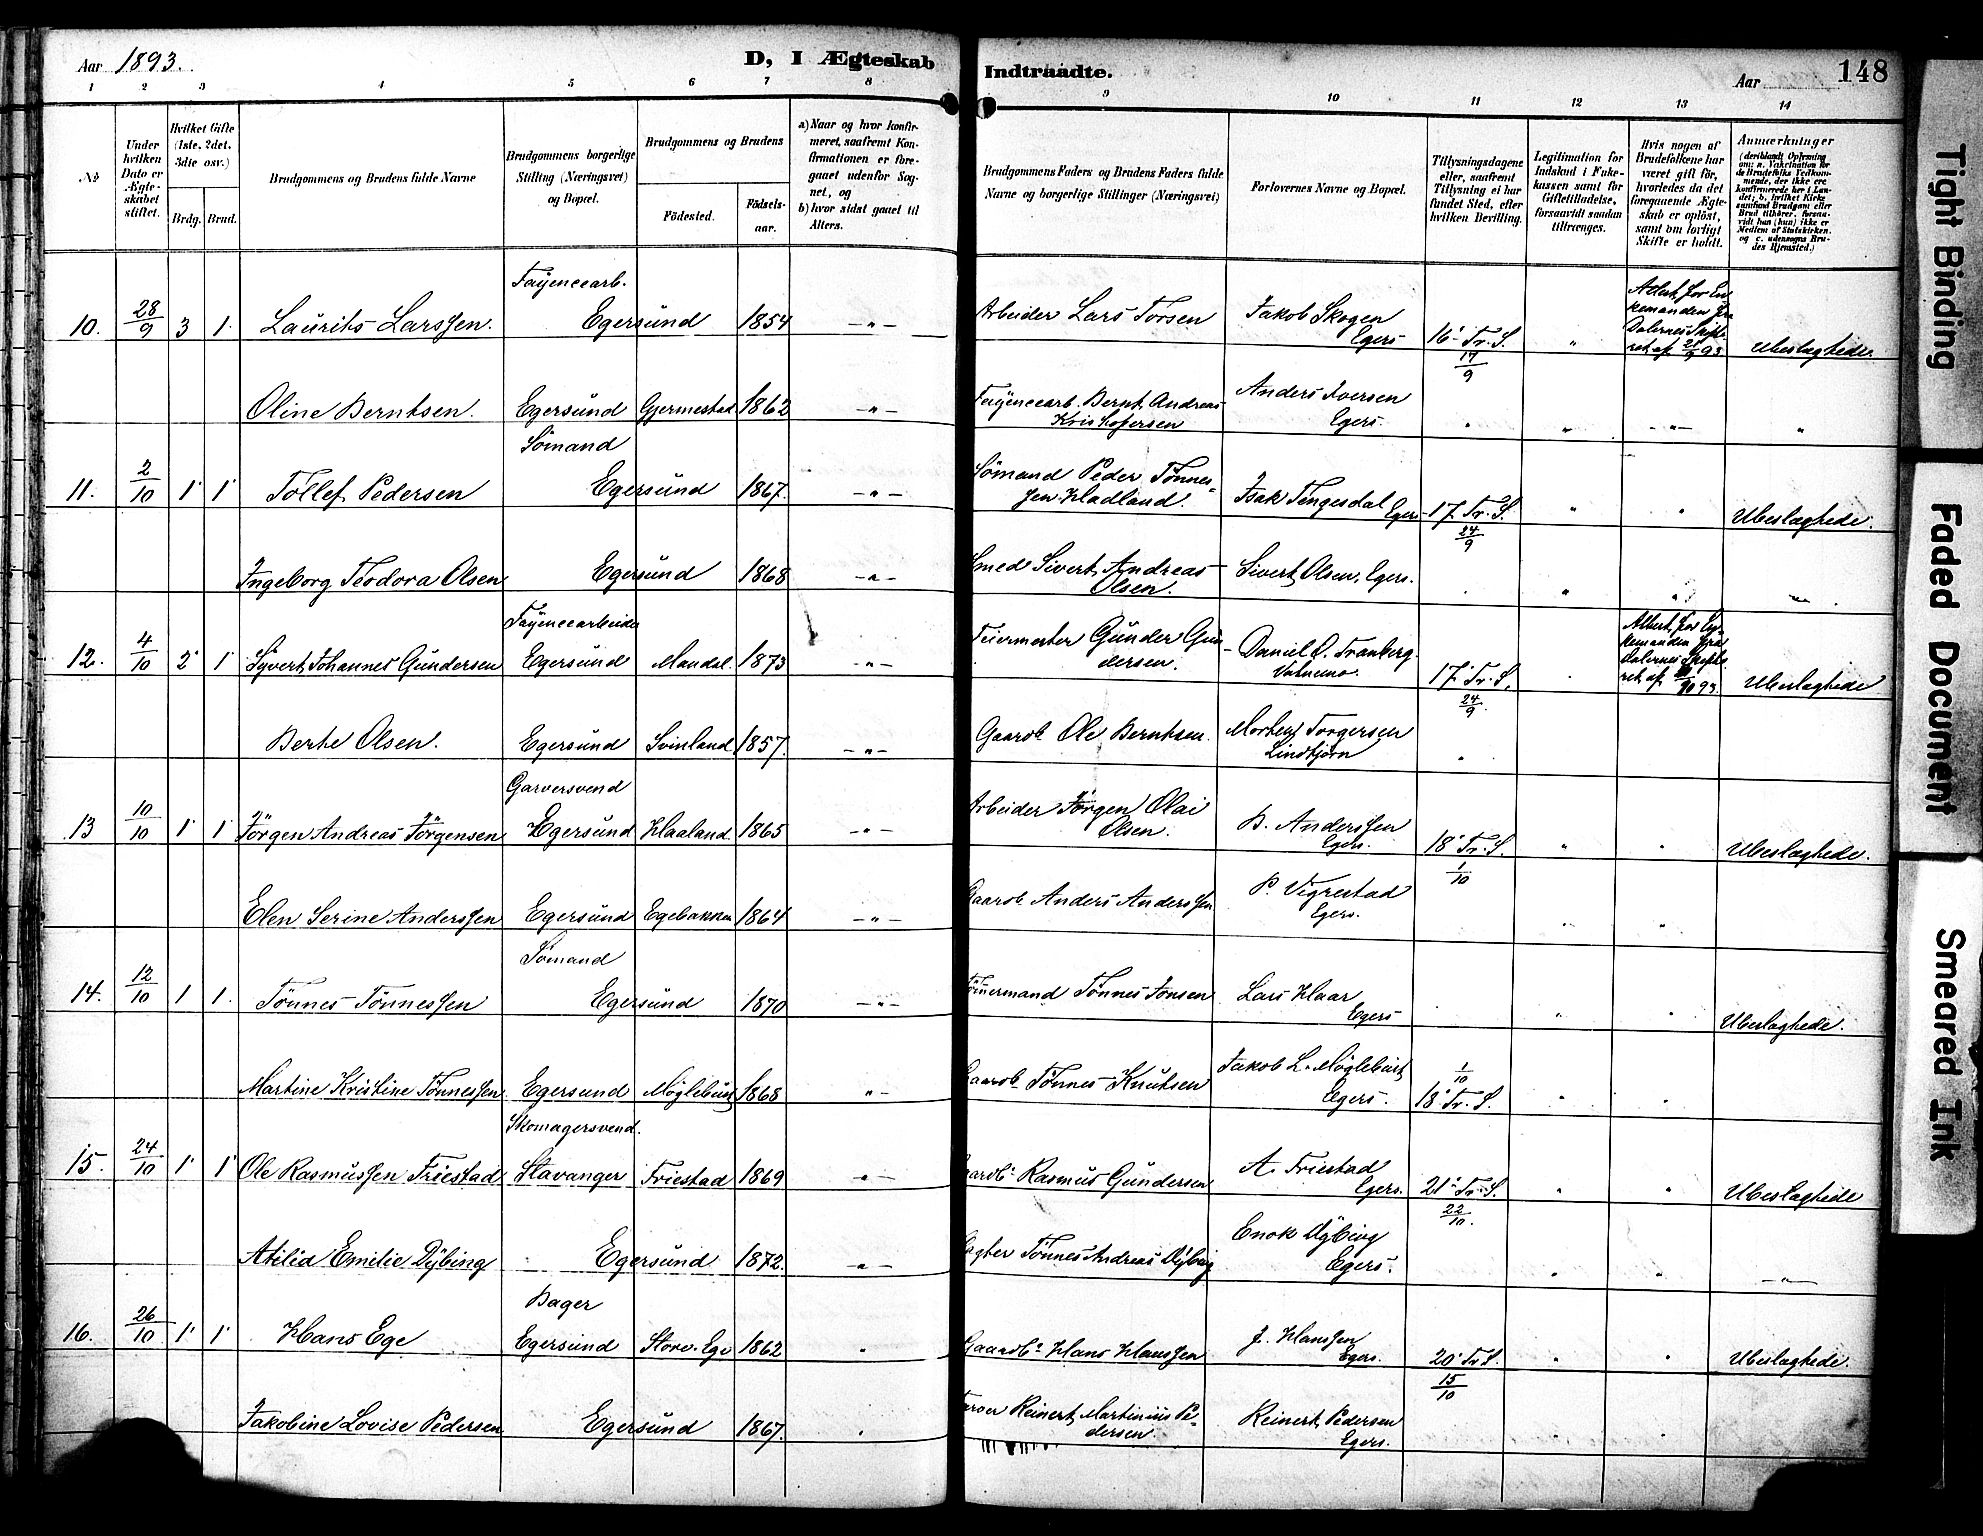 Aar 1893.
D, I Ægteskab
Indtraadte.
Aar
148
1 2 3 4 5 6 7 8 9 10 11 12 13 14
No
Under hvilken Dato er Ægteskabet stiftet.
Hvilket Gifte (1ste, 2det, 3die osv.)
Brdg. Brud.
Brudgommens og Brudens fulde Navne
Brudgommens borgerlige Stilling (Næringsvei) og Bopæl.
Brudgommens og Brudens
Födested.
Födsels-aar.
a) Naar og hvor konfirmeret, saafremt Konfirmationen er foregaaet udenfor Sognet, og
b) hvor sidst gaaet til Alters.
Brudgommens Faders og Brudens Faders fulde Navne og borgerlige Stillinger (Næringsvei)
Forlovernes Navne og Bopæl.
Tillysningsdagene eller, saafremt Tillysning ei har fundet Sted, efter hvilken Bevilling.
Legitimation for Indskud i Enkekassen samt for Giftetilladelse, forsaavidt saadan tiltrænges.
Hvis nogen af Brudefolkene har været gift för, hvorledes da det foregaaende Ægteskab er oplöst, samt om lovligt Skifte er holdt.
Anmærkninger
(deriblandt Oplysning om: a. Vakcination for de Brudefolks Vedkommende, der ikke ere konfirmerede her i Landet; b. hvilket Kirkesamfund Brudgom eller Brud tilhörer, forsaavidt han (hun) ikke er Medlem af Statskirken, og c. udensogns Brudes Hjemsted.)
Fayencearb.
10. 28/9 3 1. Laurits Larssen. Egersund 1854 —"— Arbeider Lars Torsen Jakob Skogen Egers 16' Tr. S. 17/9 " Attest for Enkemanden fra Dalernes Skifteret af 21/9 93 Ubeslægtede.
Oline Berntsen. Egersund Gjermestad 1862 —"— Fayencearb. Bernt Andreas Kristofersen Anders Iversen Egers. " " —"— "
Sömand
11. 2/10 1' 1' Tollef Pedersen Egersund 1867. —"— Sömand Peder Tönnessen Hadland. Isak Tengesdal Egers 17 Tr. S. 24/9 " " Ubeslægtede.
Ingeborg Teodora Olsen Egersund 1868 —"— Smed Sivert Andreas Olsen. Sivert Olsen, Egers. " "
Fayencearbeider
12. 4/10 2' 1' Syvert Johannes Gundersen Egersund Mandal 1873 —"— Feiermester Gunder Gundersen. Daniel O. Tranberg. 17' Tr. S. 24/9 Attest for Enkemanden fra Dalernes Skifteret af 93. Ubeslægtede
Berte Olsen. Egersund Svinland 1857. —"— Gaardb. Ole Berntsen. Morten Torgersen Lindtjörn "
Garversvend
13 10/10 1' 1' Jörgen Andreas Jörgensen Egersund Haaland 1865 —"— Arbeider Jörgen Olai Olsen. B. Anderssen Egers. 18' Tr. S. 1/10 " " Ubeslægtede.
Elen Serine Anderssen Egersund Egebakken 1864 —"— Gaardb. Anders Anderssen P. Vigrestad Egers. " "
Sömand
14. 12/10 1 1. Tönnes Tönnessen Egersund 1870 —"— Tömmermand Tönnes Jonsen Lars Haar Egers " " Ubeslægtede.
Martine Kristine Tönnessen. Egersund Möglebust 1868 "— Gaardb. Tönnes Knutsen Jakob L. Möglebust Egers. 1/10 18' Tr. S. " "
Skomagersvend.
15. 24/10 1' 1' Ole Rasmussen Friestad Stavanger Friestad 1869 "— Gaardbr. Rasmus Gundersen A. Friestad Egers. 21' Tr. S. 22/10. " " Ubeslægtede
Atilia Emilie Dybing Egersund 1872. "— Tönnes Andreas Dybing Enok Dybing Egers. " " —"—
Bager
16. 26/10 1' 1' Hans Ege Egersund Store-Ege 1862 " Gaardbr. Hans Hanssen J. Hanssen Egers. 20' Tr. S. 15/10 " " Ubeslægtede.
Jakobine Lovise Pedersen Egersund 1867. " Reinert Martinius Pedersen. Reinert Pedersen Egers. " "
Tight Binding
Faded Document
Smeared Ink